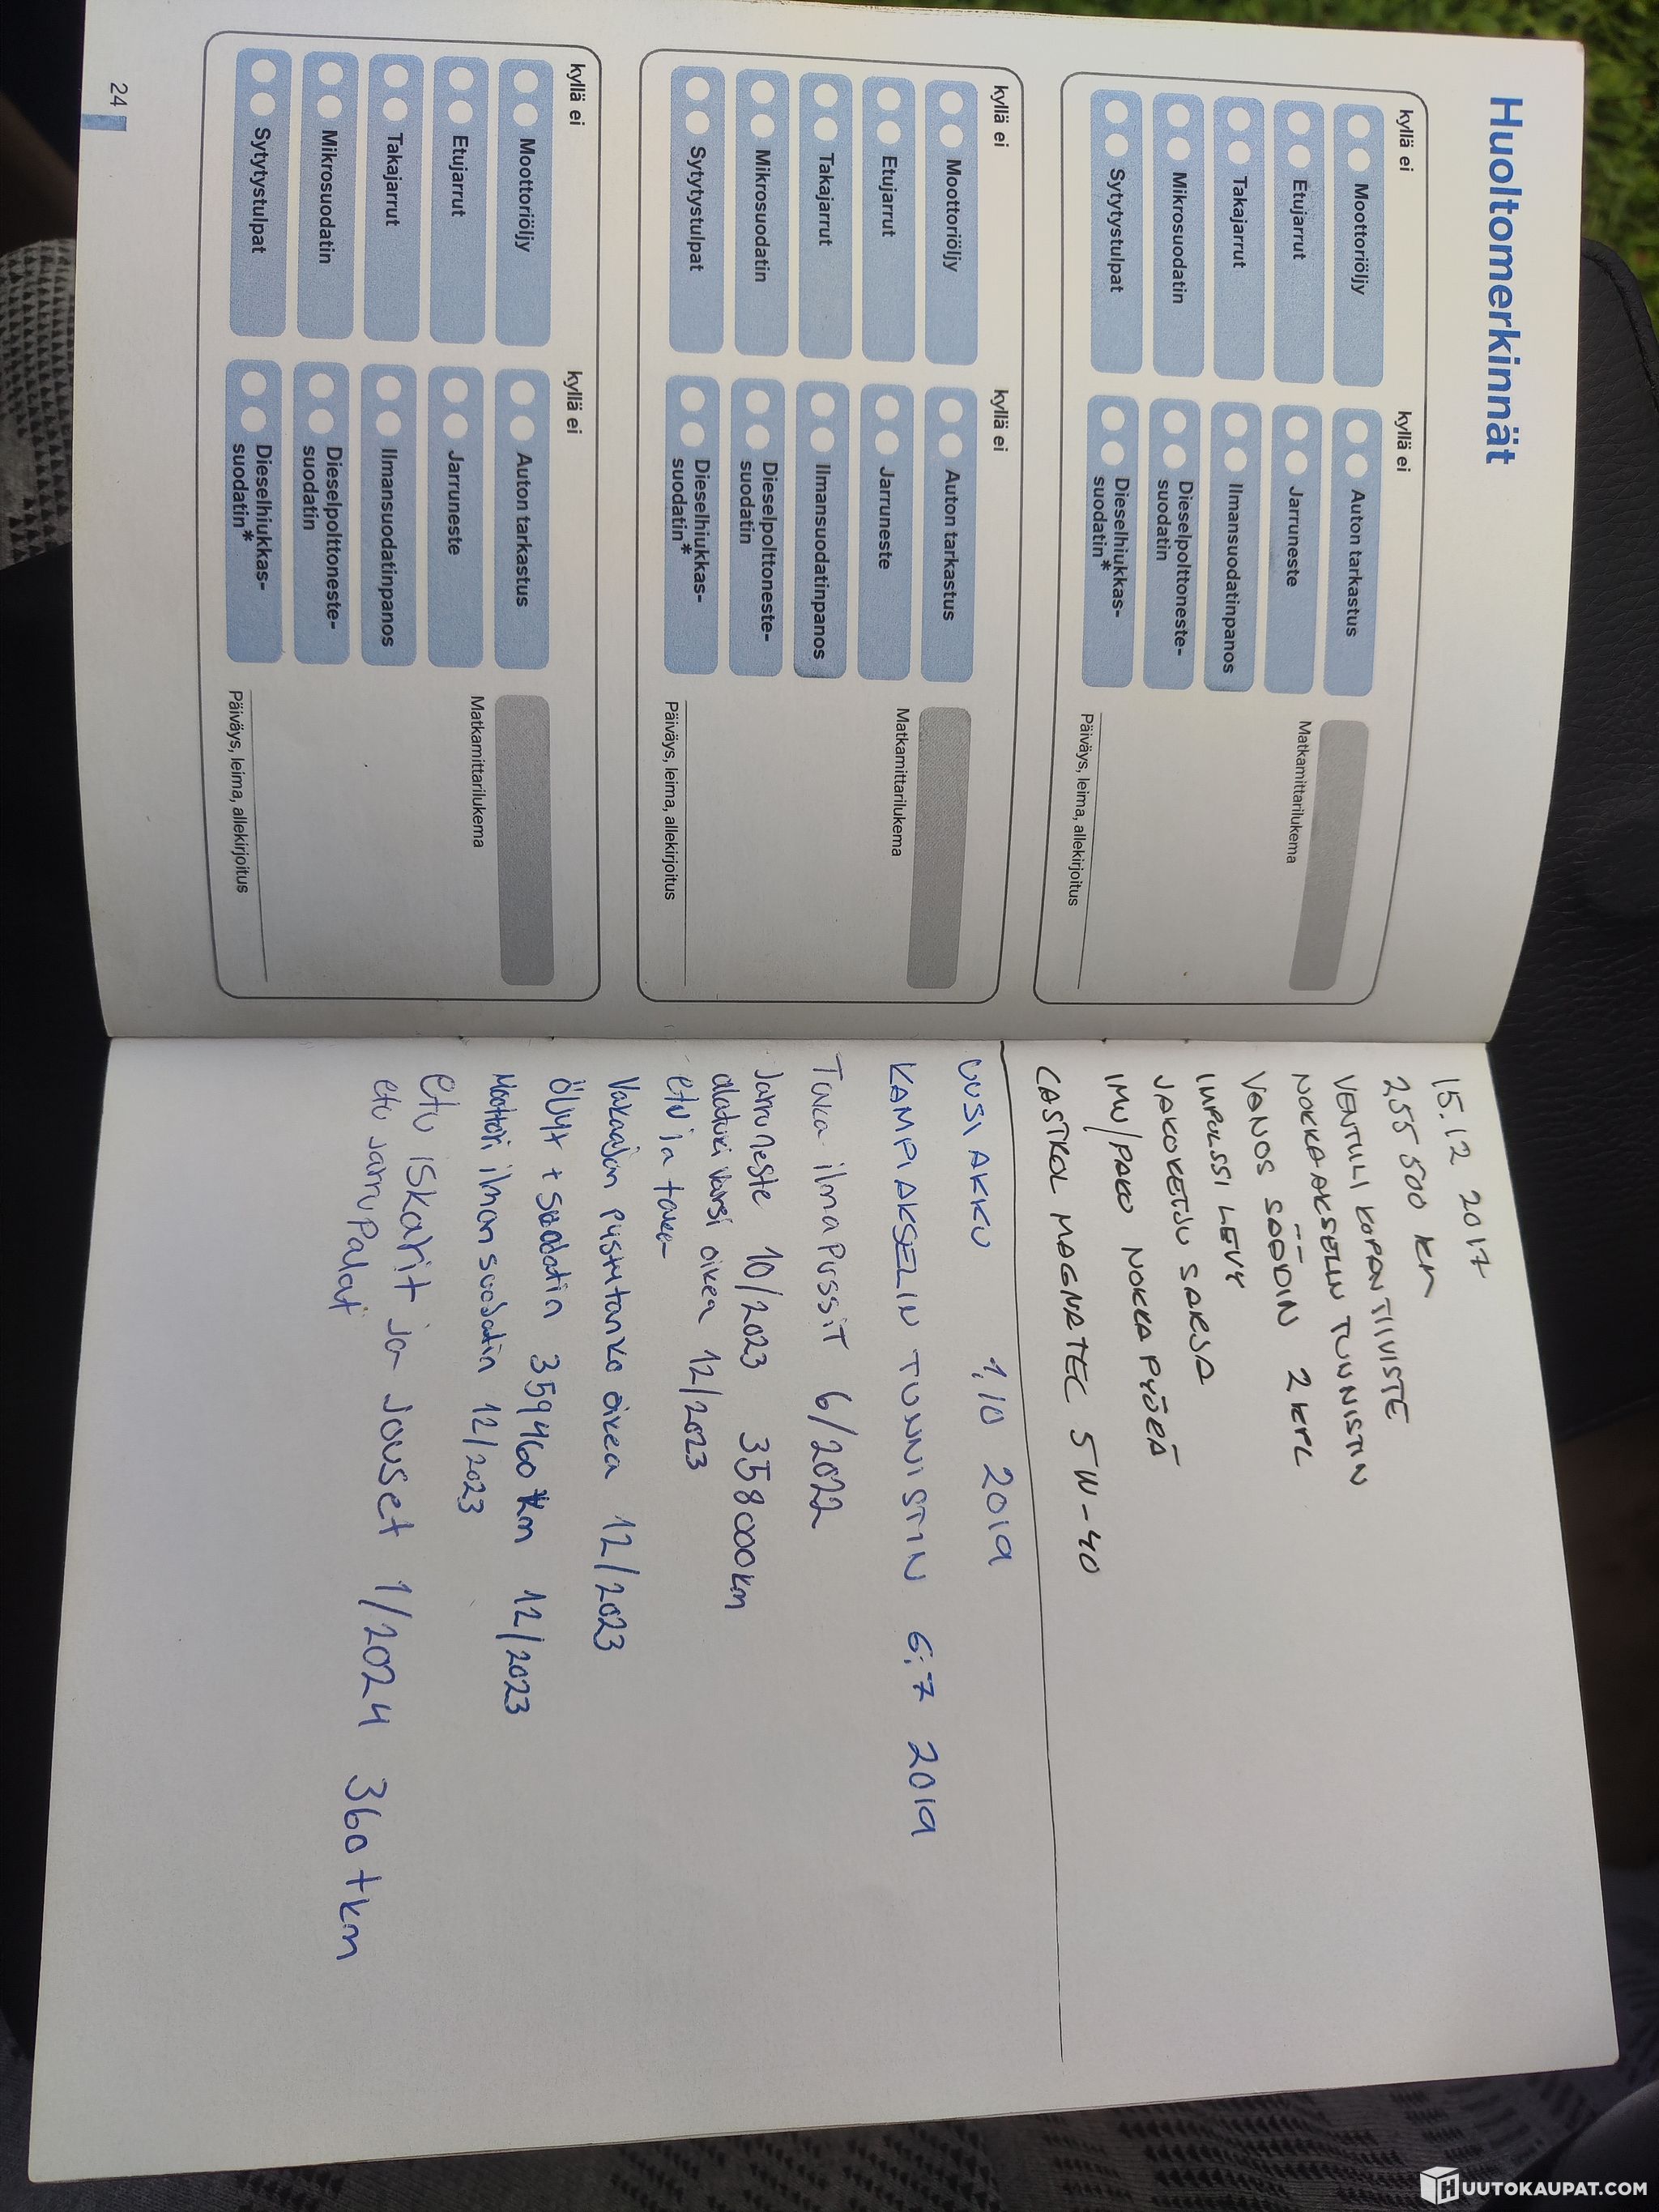 Huoltomerkinnät
kyllä ei
kyllä ei
Moottoriöljy
Auton tarkastus
Etujarrut
Jarruneste
Takajarrut
Ilmansuodatinpanos
Mikrosuodatin
Dieselpolttoneste-
suodatin
Sytytystulpat
Dieselhiukkas-
suodatin*
Matkamittarilukema
Päiväys, leima, allekirjoitus
kyllä ei
kyllä ei
Moottoriöljy
Auton tarkastus
Etujarrut
Jarruneste
Takajarrut
Ilmansuodatinpanos
Mikrosuodatin
Dieselpolttoneste-
suodatin
Sytytystulpat
Dieselhiukkas-
suodatin*
Matkamittarilukema
Päiväys, leima, allekirjoitus
kyllä ei
kyllä ei
Moottoriöljy
Auton tarkastus
Etujarrut
Jarruneste
Takajarrut
Ilmansuodatinpanos
Mikrosuodatin
Dieselpolttoneste-
suodatin
Sytytystulpat
Dieselhiukkas-
suodatin*
Matkamittarilukema
Päiväys, leima, allekirjoitus
24
15.12 2017
255 500 km
VENTTIILI KOPAN TIIVISTE
NOKKA AKSELIN TUNNISTIN
VANOS SÄÄDIN 2 KPL
IMPULSSI LEVY
JAKOKETJU SARJA
IMU/PAKO NOKKA PYÖRÄ
CASTROL MAGNATEC 5W-40
UUSI AKKU 1,10 2019
KAMPIAKSELIN TUNNISTIN 6.7 2019
Taka ilmapussit 6/2022
Jarruneste 10/2023 358000km
alatukivarsi oikea 12/2023
etu ja taka
Vakaajan pystytanko oikea 12/2023
Öljyt + suodatin 359460 km 12/2023
Moottori ilman suodatin 12/2023
etu iskarit ja jouset 1/2024 360tkm
etu jarru Palat
HUUTOKAUPAT.COM